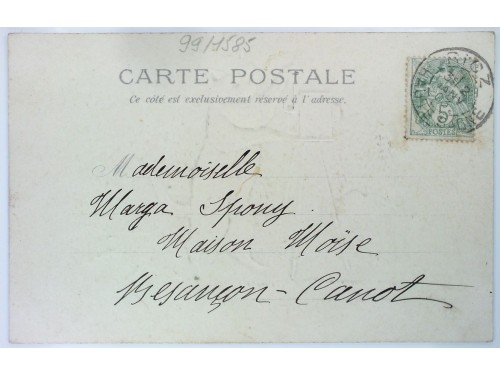 99/1585
CARTE POSTALE
Ce côté est exclusivement réservé à l'adresse.
Mademoiselle
Marga Spony
Maison Moïse
Besançon-Canot
5
POSTES